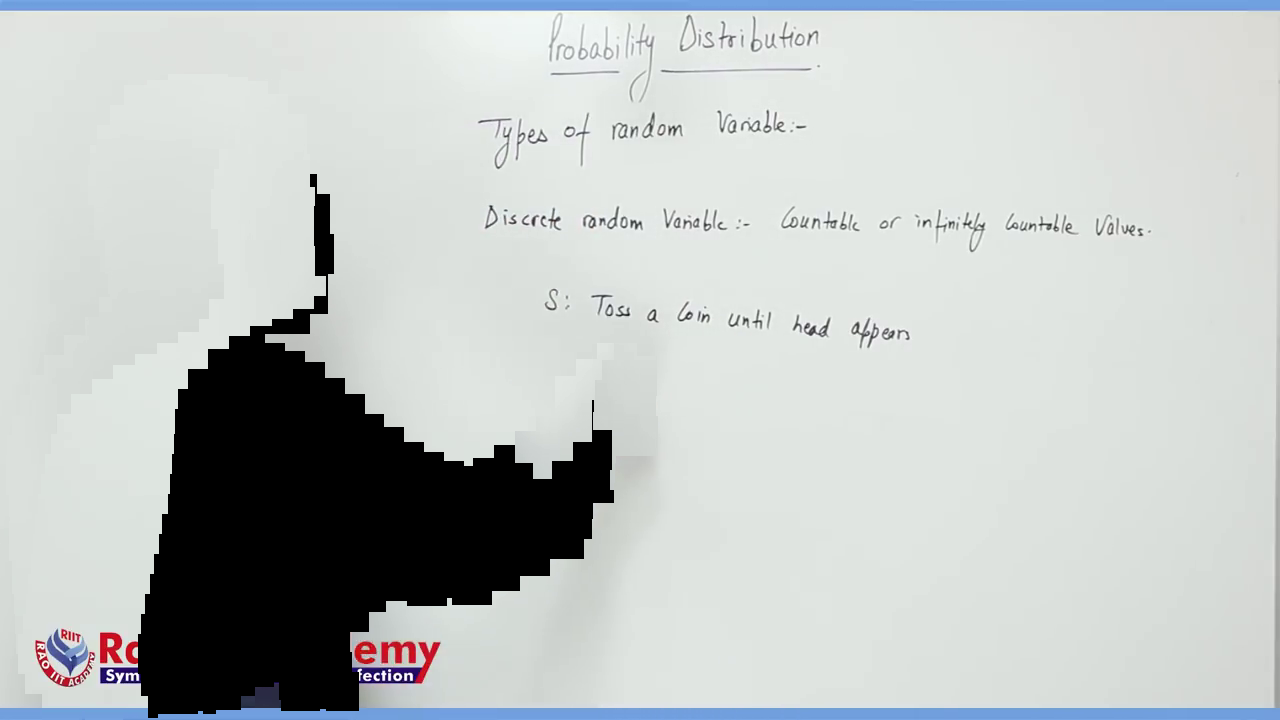 Probability Distribution
Types of random Variable:-
Discrete random Variable:- Countable or infinitely Countable Values.
S: Toss a Coin until head appears
RIIT
RAO IIT ACADEMY